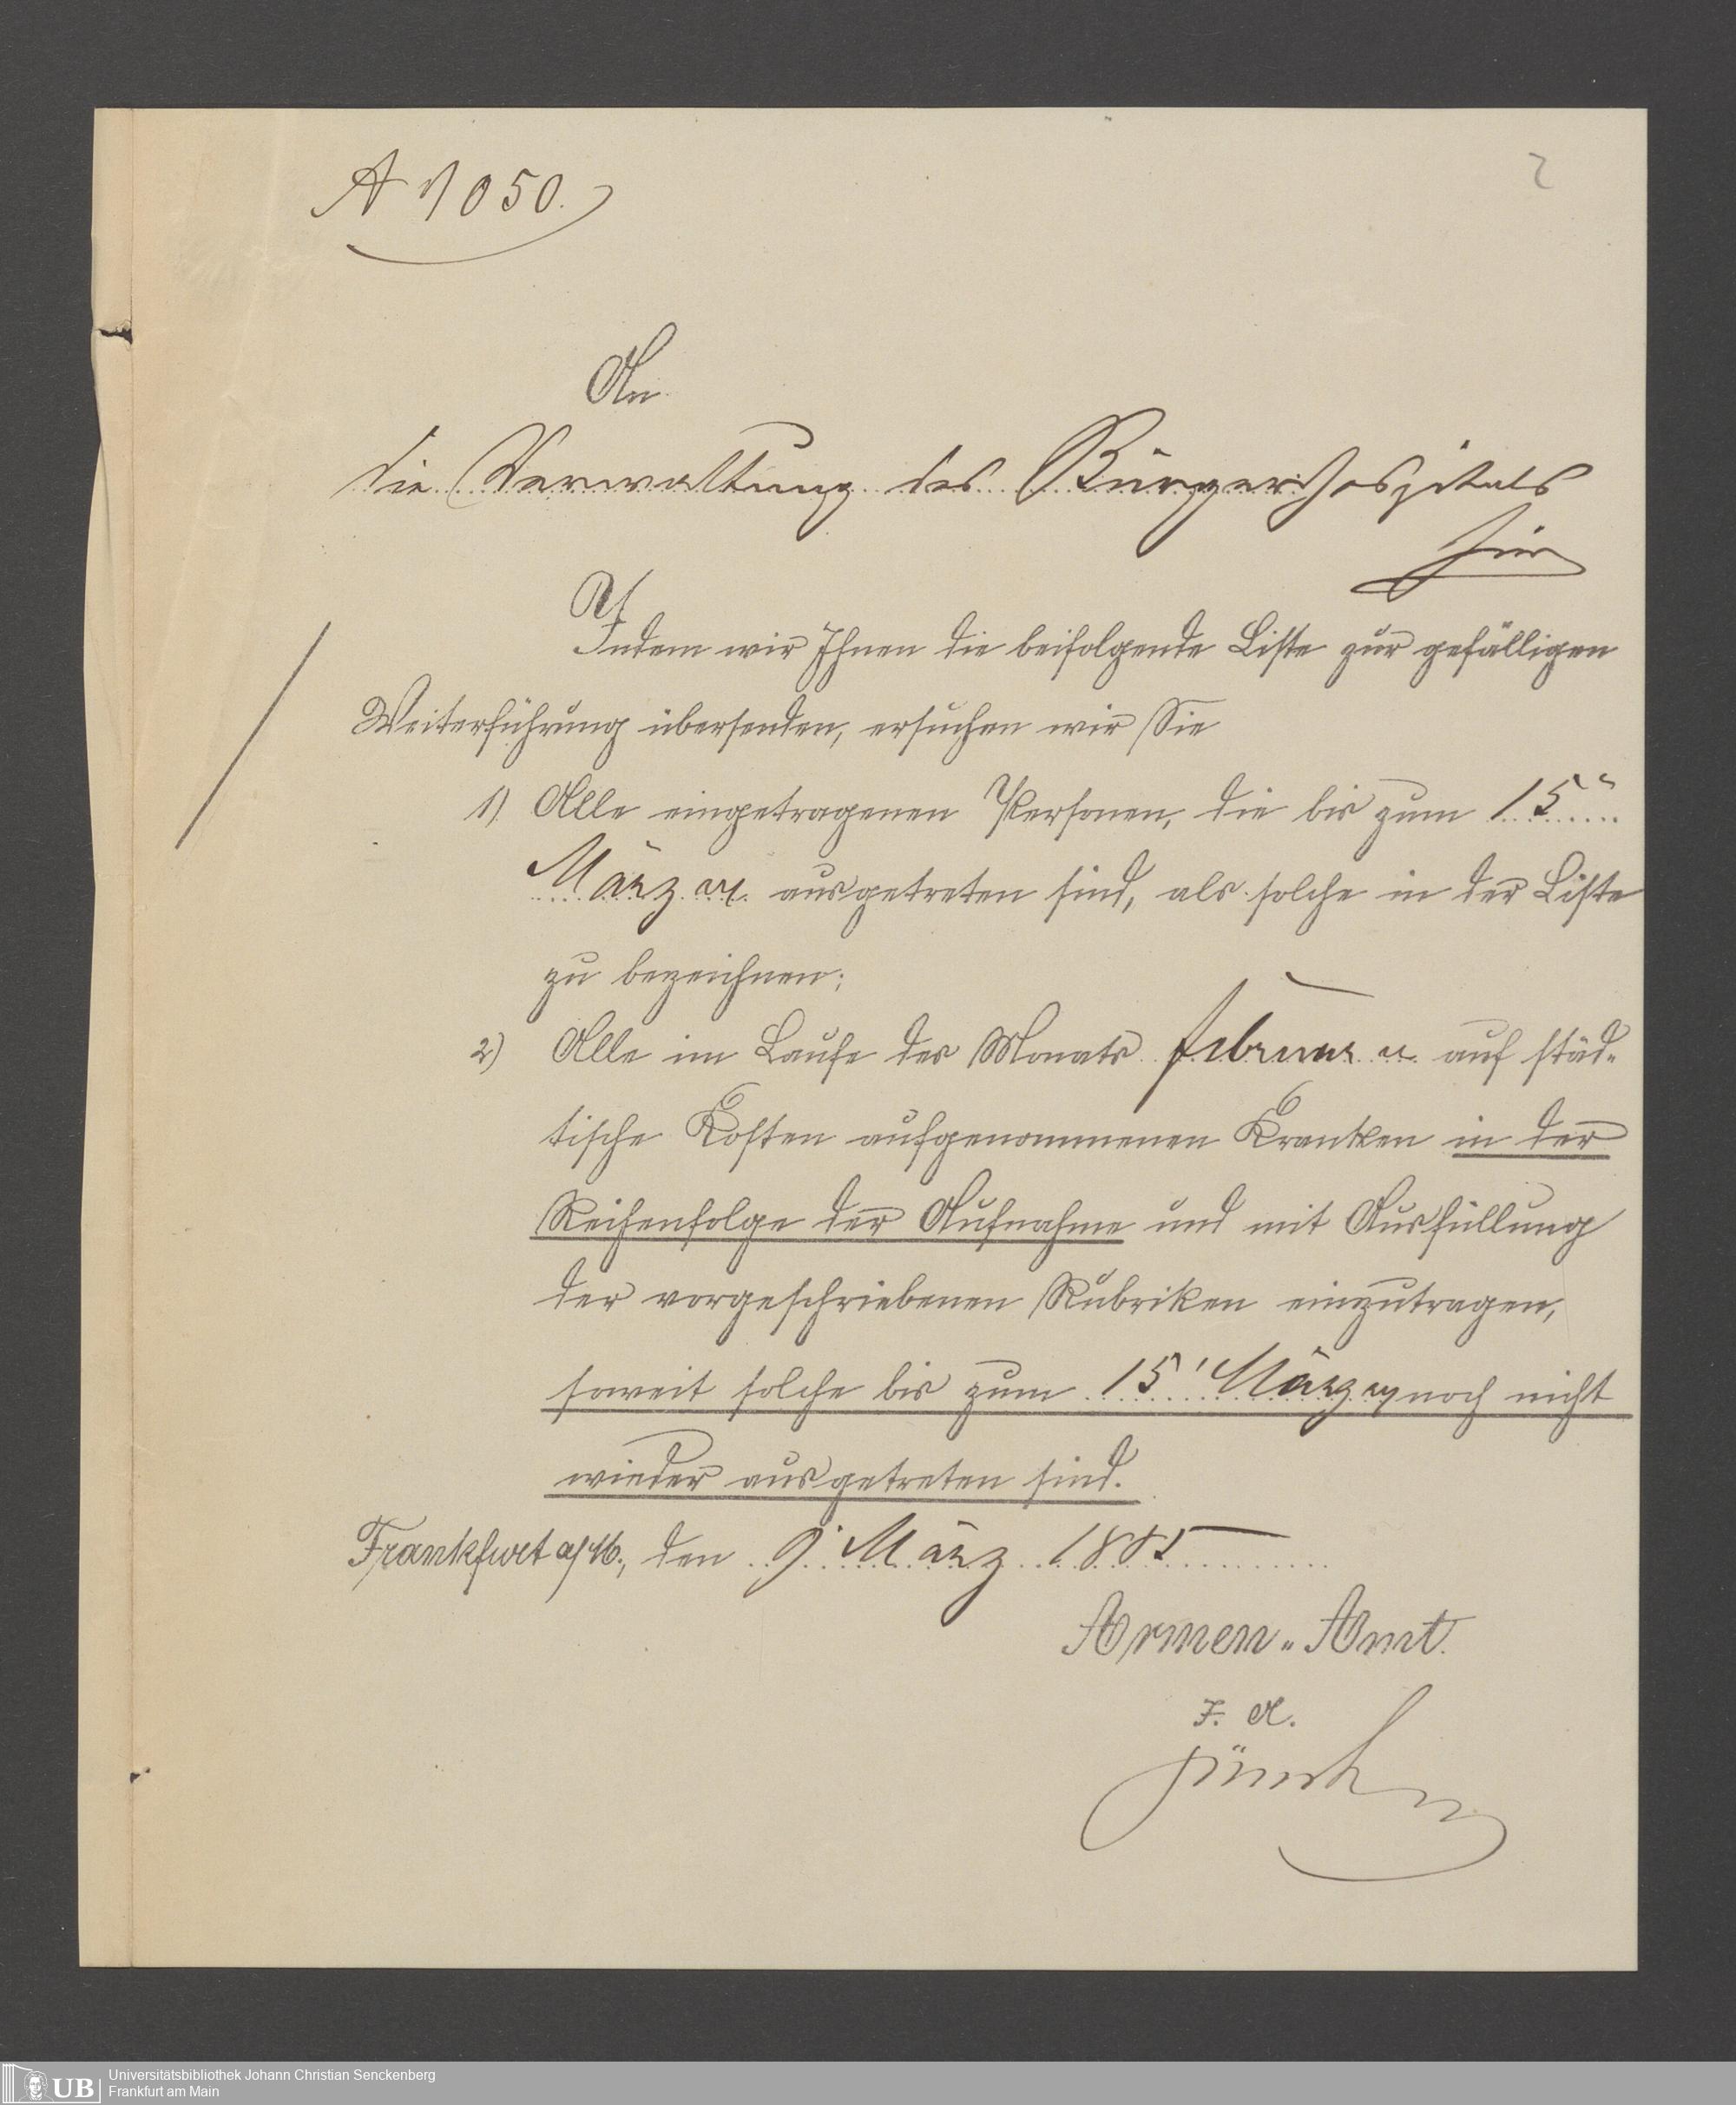 A 1050.
2
An
die Verwaltung des Bürgerhospitals
hier
Indem wir Ihnen die beifolgende Liste zur gefälligen
Weiterführung übersenden, ersuchen wir Sie
1) Alle eingetragenen Personen, die bis zum 15
März cr. ausgetreten sind, als solche in der Liste
zu bezeichnen;
2) Alle im Laufe des Monats Februar cr. auf städ-
tische Kosten aufgenommenen Kranken in der
Reihenfolge der Aufnahme und mit Ausfüllung
der vorgeschriebenen Rubriken einzutragen,
soweit solche bis zum 15 März cr noch nicht
wieder ausgetreten sind.
Frankfurt a/M., den 9. März 1885
Armen-Amt.
I. A.
UB
Universitätsbibliothek Johann Christian Senckenberg
Frankfurt am Main